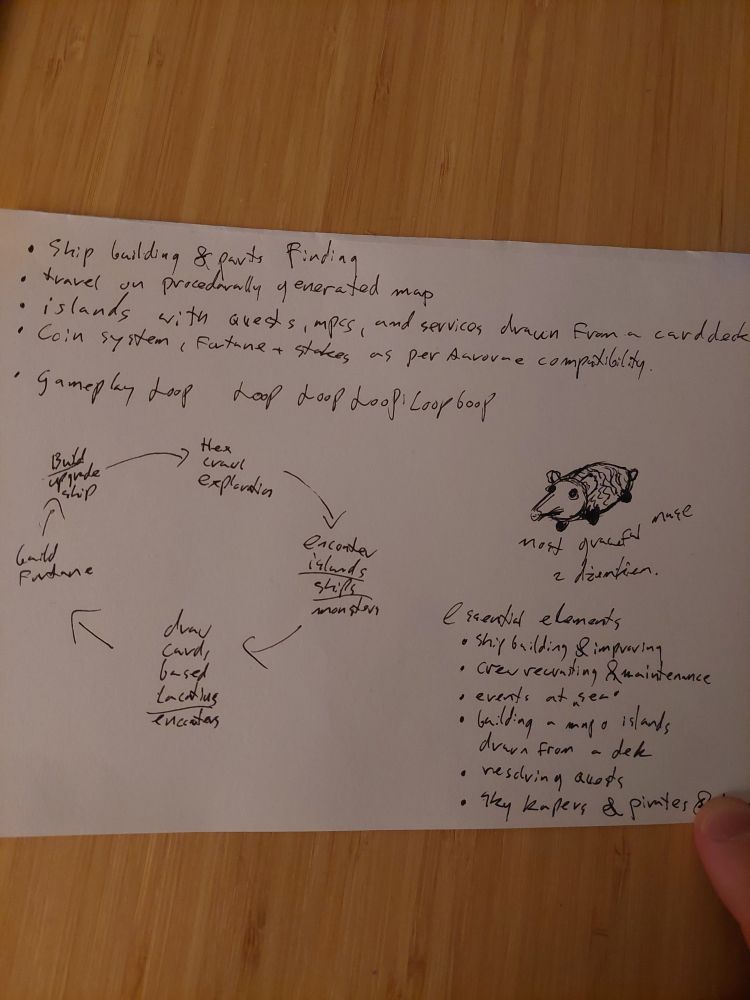 • Ship building & parts Finding
• travel on procedurally generated map
• islands with quests, npcs, and services drawn from a card deck
• Coin system, Fortune + stakes as per compatibility.
• Gameplay Loop Loop Loop Loop: Loop boop
Build
upgrade
ship
Hex
crawl
exploration
encounter
islands
ships
monsters
draw
cards
based
encounters
build
Fortune
most graceful
2
Essential elements
• ship building & improving
• crew recruiting & maintenance
• events at "sea"
• building a map o islands
drawn from a dek
• resolving quests
• Sky kapers & pirates &